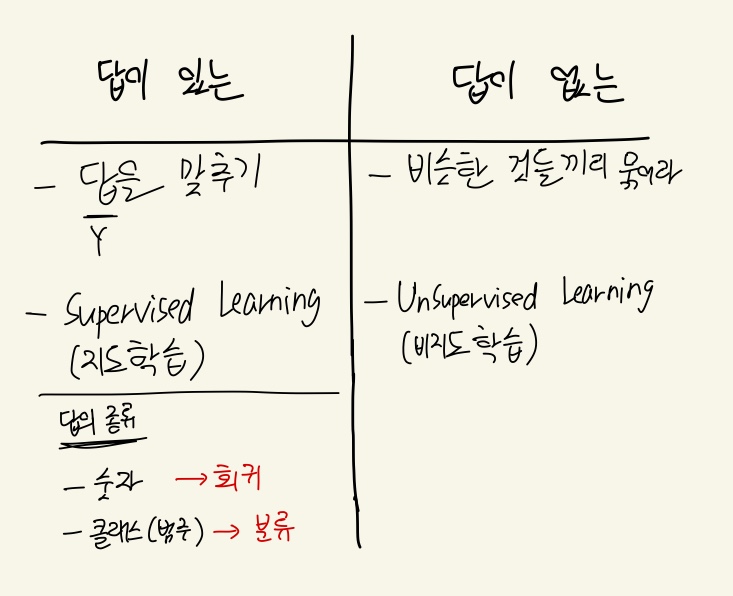 답이 있는
답이 없는
- 답을 맞추기
Y
- Supervised Learning
(지도학습)
- 비슷한 것들끼리 묶어라
- Unsupervised Learning
(비지도학습)
답의 종류
- 숫자 → 회귀
- 클래스(범주) → 분류